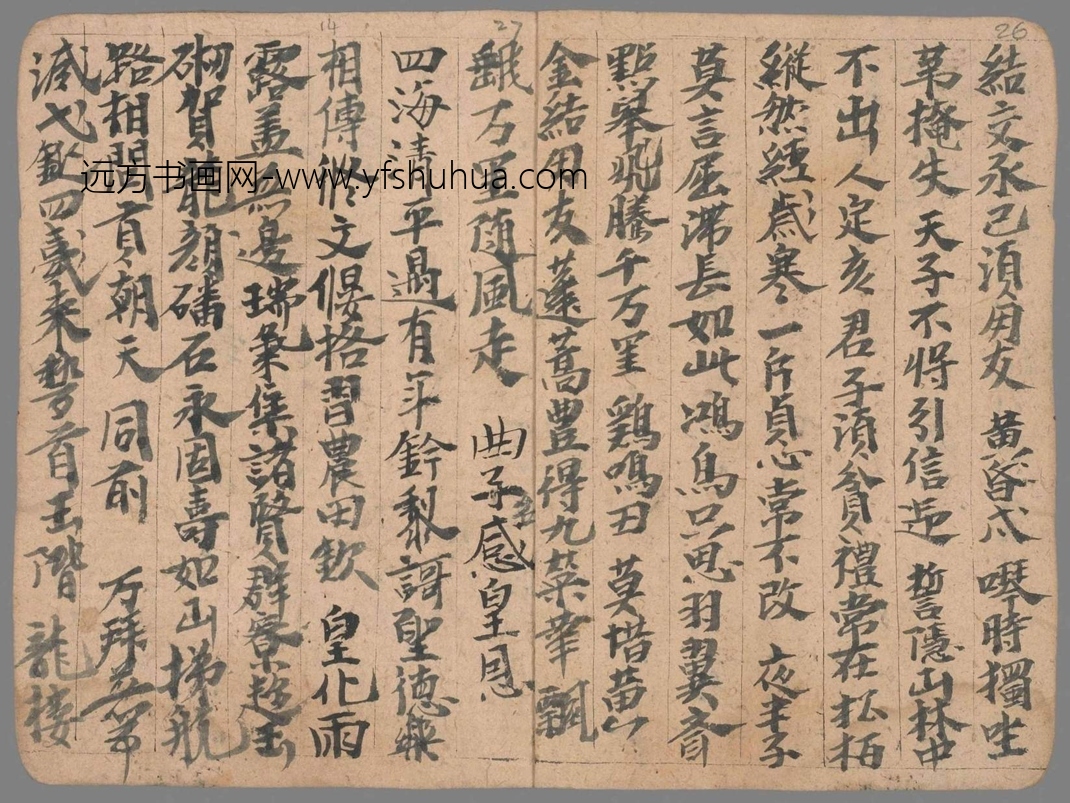 26
結交承己須用友 黃昏戌 嘿時獨坐
苐掩失 天子不將引信迎 誓隱山林中
不出 人定亥 君子須貧禮常在 松柏
縱然經歲寒 一片貞心常不改 夜半子
莫言屈滯長如此 鴻鳥只思羽翼齊
點舉飛騰千万里 雞鳴丑 莫惜黃
金結用友 蓬蒿豊得九榮華 飄
27
飖万里隨風走 曲子感皇恩
四海清平遇有年 鈐梨謌聖德樂
14
相傳 修文偃挌習農田 欽 皇化雨
露盖無邊 瑞氣集諸賢群寮趨玉
砌賀龍顏磻石永固壽如山梯航
路相問貢朝天 同前 万拜
滅弋欽四夷來 首玉階 龍樓
远方书画网-www.yfshuhua.com